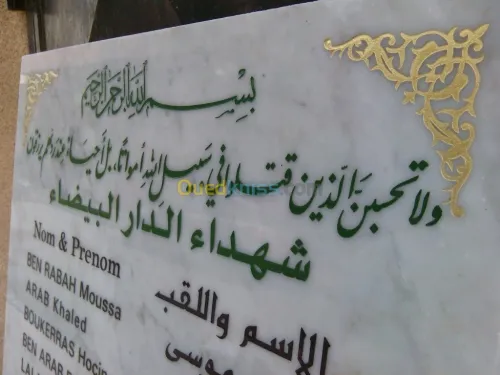 بسم الله الرحمن الرحيم
ولا تحسبن الذين قتلوا في سبيل الله أمواتا بل أحياء عند ربهم يرزقون
شهداء الدار البيضاء
Nom & Prenom
الاسم واللقب
BEN RABAH Moussa
موسى
ARAB Khaled
BOUKERRAS Hocin
BEN ARAB
OuedKniss.com